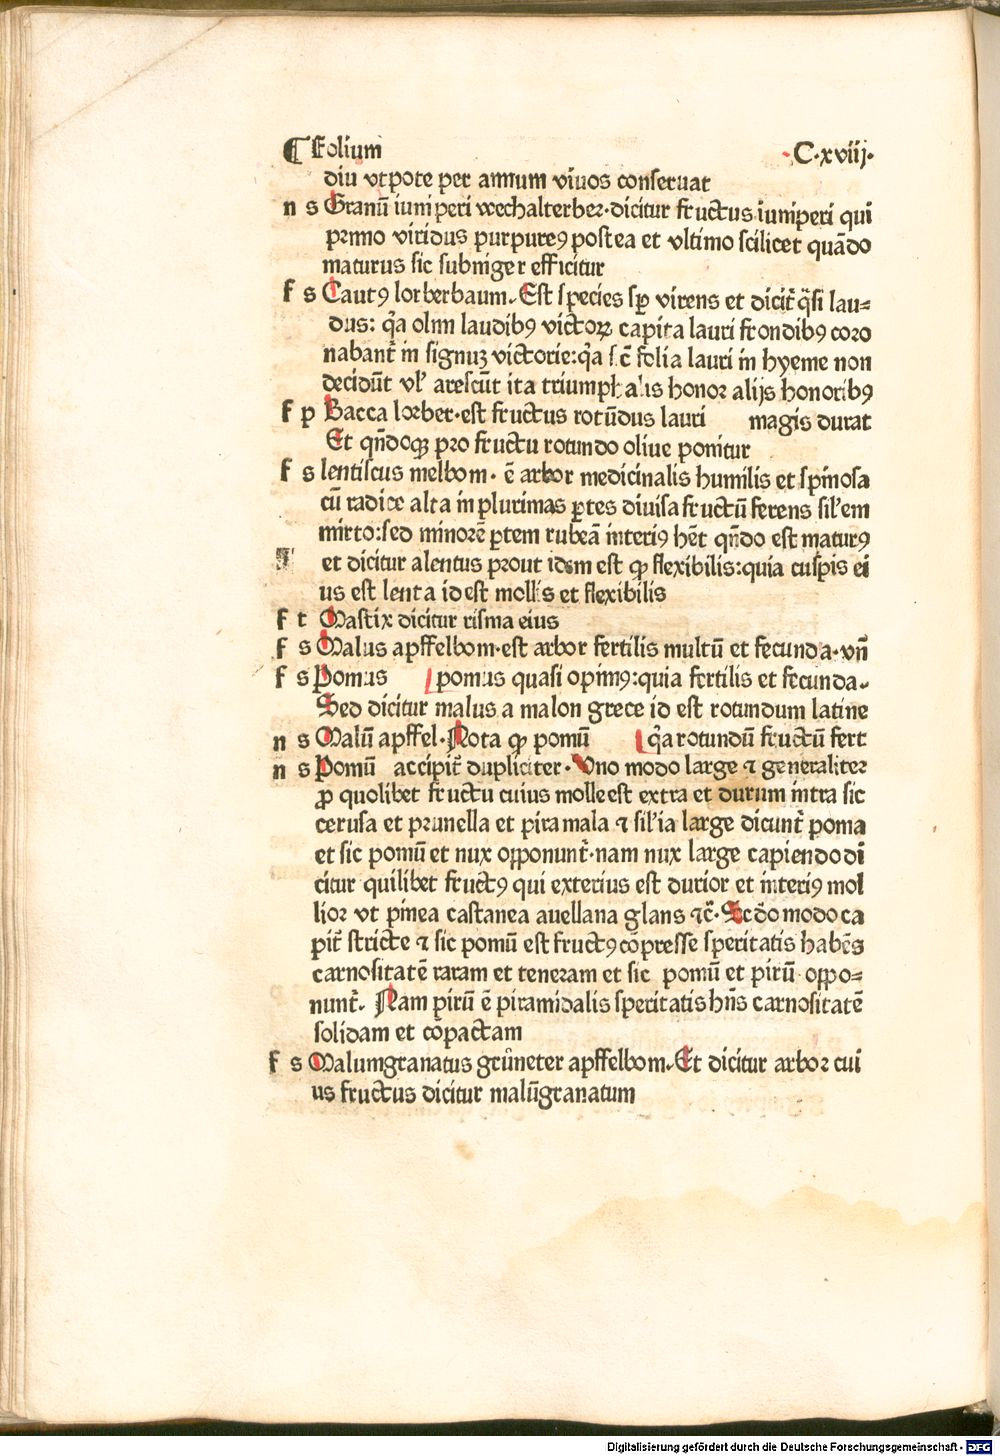 ¶ Folium C.xviij.
diu vtpote per annum viuos conseruat
n s Granū iuniperi wechalterber.dicitur fructus iuniperi qui
primo viridus purpureꝯ postea et vltimo scilicet quādo
maturus sic subniger efficitur
f s Lautꝯ lorberbaum. Est species sꝑ virens et dicit̄ q̄si lau⸗
dus: q̄a olim laudibꝯ victoꝝ capita lauri frondibꝯ coro
nabant̄ in signuꝫ victorie:q̄a sc̄ folia lauri in hyeme non
decidūt vl' arescūt ita triumphalis honor alijs honoribꝯ
f p Bacca lorber.est fructus rotūdus lauri magis durat
Et qn̄doqꝫ pro fructu rotundo oliue ponitur
f s lentiscus melbom. ē arbor medicinalis humilis et spinosa
cū radice alta in plurimas ꝑtes diuisa fructū ferens sil'em
mirto:sed minorē ꝑtem rubeā interiꝯ hēt qn̄do est maturꝯ
et dicitur a lentus prout idem est ꝙ flexibilis:quia cuspis ei
us est lenta id est mollis et flexibilis
f t Mastix dicitur risma eius
f s Malus apffelbom.est arbor fertilis multū et fecunda.vn̄
f s Pomus pomus quasi opimꝯ:quia fertilis et fecunda.
Sed dicitur malus a malon grece id est rotundum latine
n s Malū apffel. Nota ꝙ pomū q̄a rotundū fructū fert
n s Pomū accipit̄ dupliciter. Uno modo large ⁊ generaliter
ꝓ quolibet fructu cuius molle est extra et durum intra sic
cerusa et prunella et pira mala ⁊ sil'ia large dicunt̄ poma
et sic pomū et nux opponunt̄.nam nux large capiendo di
citur quilibet fructꝯ qui exterius est durior et interiꝯ mol
lior vt pinea castanea auellana glans ⁊c̄. Scdo modo ca
pit̄ stricte ⁊ sic pomū est fructꝯ cōpresse speritatis habēs
carnositatē raram et teneram et sic pomū et pirū oppo⸗
nunt̄. Nam pirū ē piramidalis speritatis hn̄s carnositatē
solidam et cōpactam
f s Malumgranatus grůneter apffelbom. Et dicitur arbor cui
us fructus dicitur malūgranatum
Digitalisierung gefördert durch die Deutsche Forschungsgemeinschaft - DFG